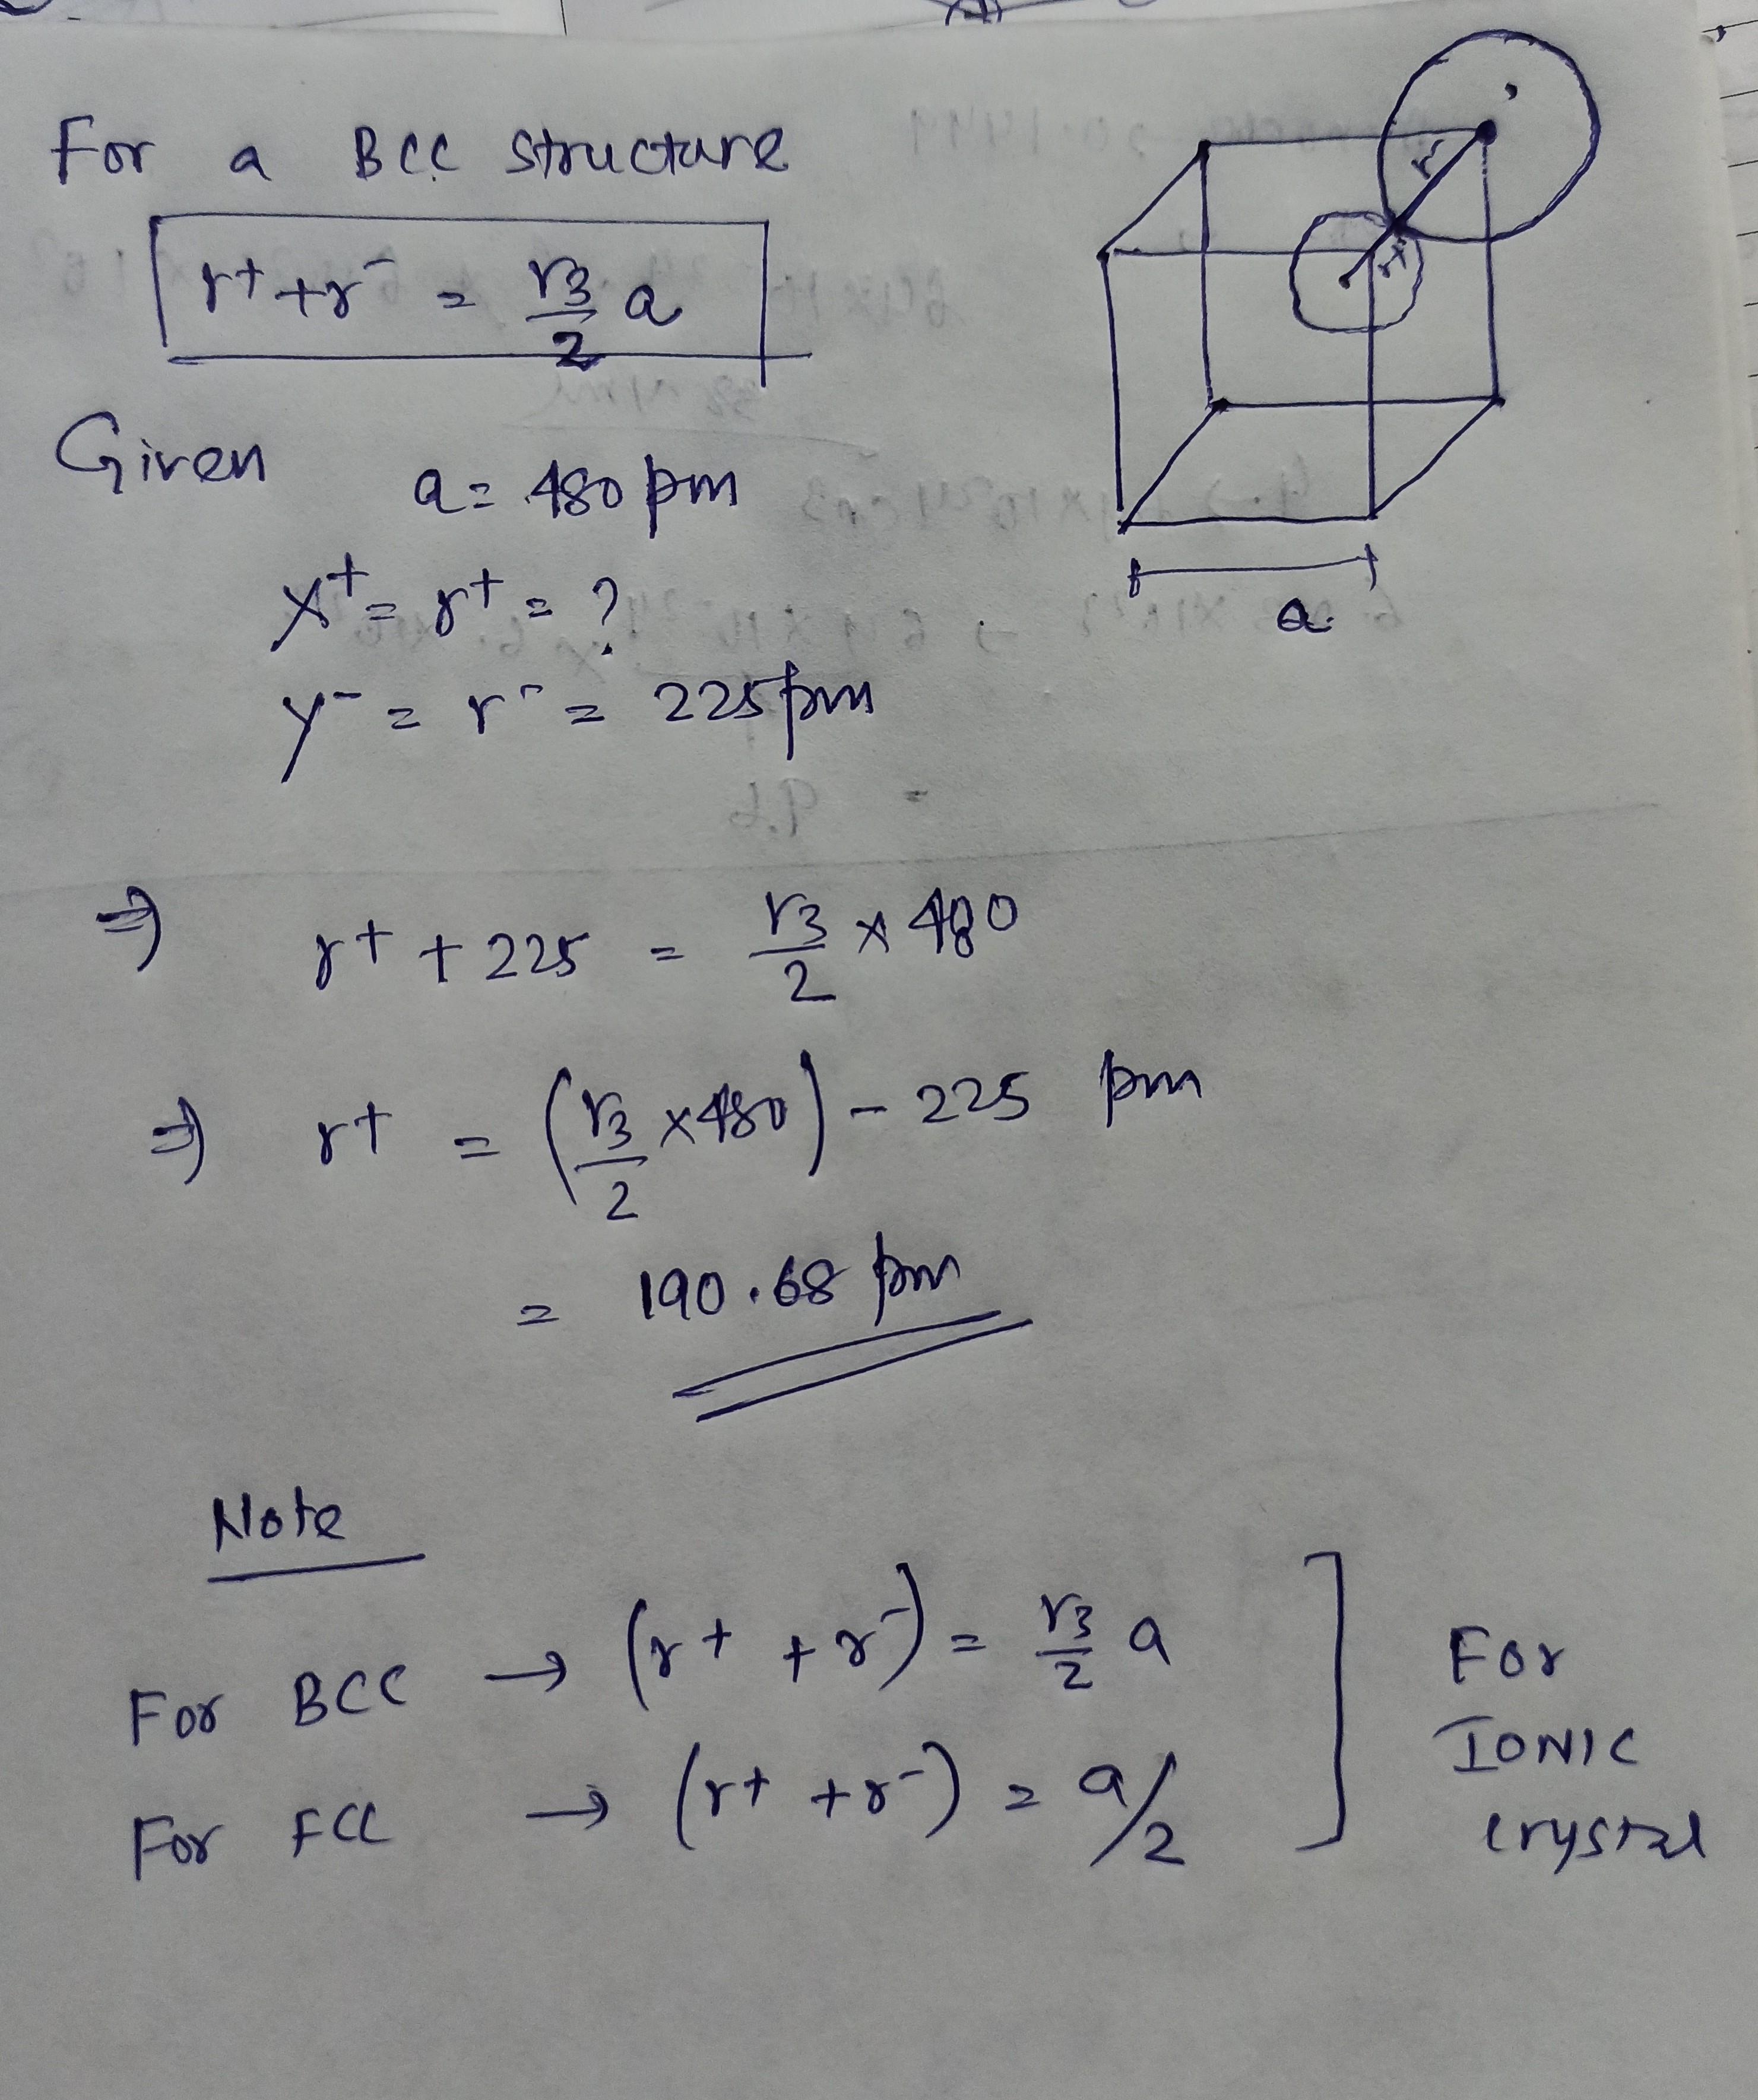 For a BCC structure
r⁺ + r⁻ = √3/2 a
Given a = 480 pm
x⁺ = r⁺ = ?
y⁻ = r⁻ = 225 pm
⇒ r⁺ + 225 = √3/2 × 480
⇒ r⁺ = (√3/2 × 480) - 225 pm
= 190.68 pm
Note
For BCC → (r⁺ + r⁻) = √3/2 a
For FCC → (r⁺ + r⁻) = a/2
For
IONIC
crystal
r⁻
r⁺
a